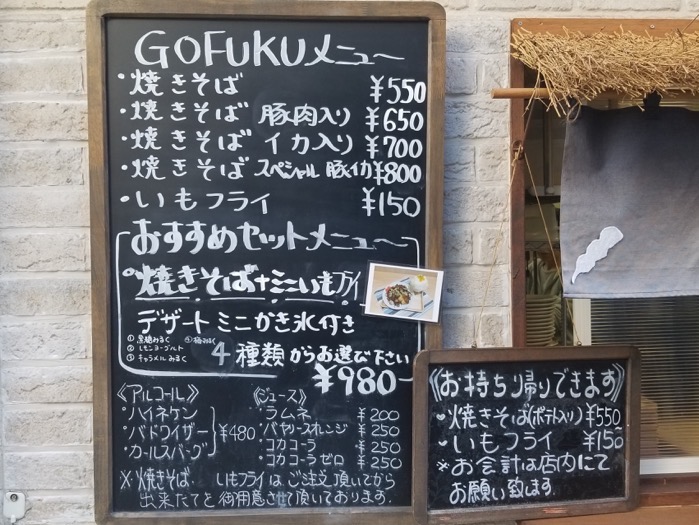 GOFUKUメニュー
・焼きそば ¥550
・焼きそば 豚肉入り ¥650
・焼きそば イカ入り ¥700
・焼きそば スペシャル 豚イカ ¥800
・いもフライ ¥150
おすすめセットメニュー
°焼きそば+ミニいもフライ
デザート ミニかき氷付き
①黒糖みるく ④梅みるく
②レモンヨーグルト
③キャラメルみるく
4種類からお選び下さい
¥980-
《アルコール》
・ハイネケン
・バドワイザー
・カールスバーグ
¥480
《ジュース》
・ラムネ ¥200
・バヤリースオレンジ ¥250
・コカコーラ ¥250
・コカコーラゼロ ¥250
※焼きそば、いもフライはご注文頂いてから
出来たてを御用意させて頂いております。
《お持ち帰りできます》
・焼きそば(ポテト入り) ¥550
・いもフライ ¥150
※お会計は店内にて
お願い致します。